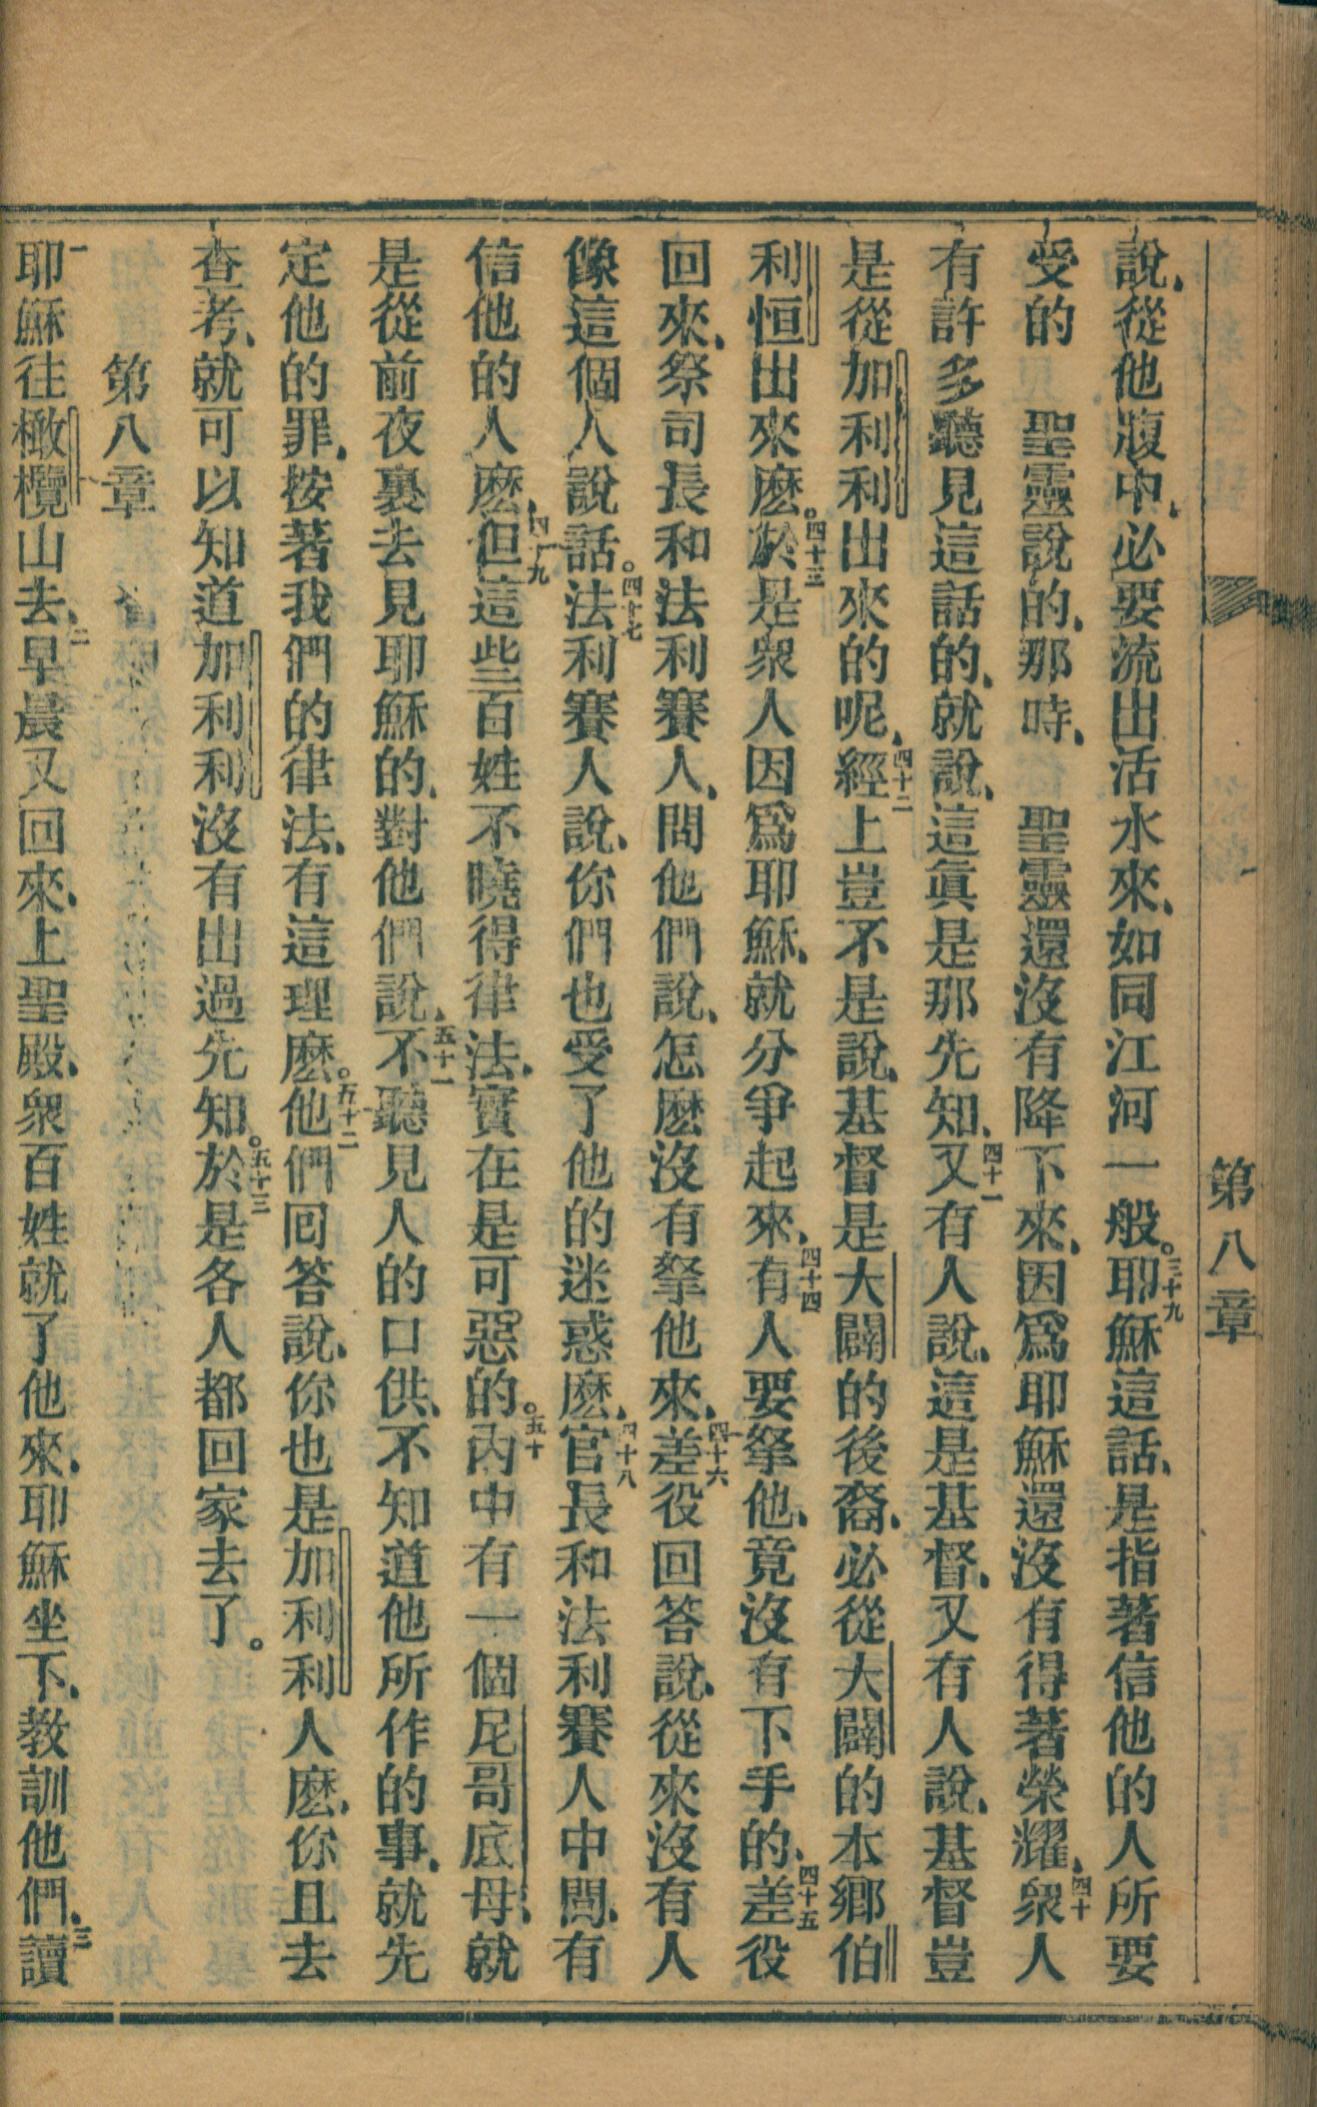 第八章
說、從他腹中、必要流出活水來、如同江河一般。三十九耶穌這話、是指著信他的人所要
受的 聖靈說的、那時、 聖靈還沒有降下來、因爲耶穌還沒有得著榮耀、四十衆人
有許多聽見這話的、就說、這眞是那先知、四十一又有人說、這是基督、又有人說、基督豈
是從加利利出來的呢、四十二經上豈不是說、基督是大闢的後裔、必從大闢的本鄉伯
利恒出來麽。四十三於是衆人因爲耶穌、就分爭起來、四十四有人要拏他、竟沒有下手的、四十五差役
回來、祭司長和法利賽人、問他們說、怎麽沒有拏他來、四十六差役回答說、從來沒有人
像這個人說話。四十七法利賽人說、你們也受了他的迷惑麽、四十八官長和法利賽人中間、有
信他的人麽、四十九但這些百姓不曉得律法、實在是可惡的。五十內中有一個尼哥底母、就
是從前夜裏去見耶穌的、對他們說、五十一不聽見人的口供、不知道他所作的事、就先
定他的罪、按著我們的律法、有這理麽。五十二他們回答說、你也是加利利人麽、你且去
查考、就可以知道加利利沒有出過先知。五十三於是各人都回家去了。
第八章
一耶穌往橄欖山去、二早晨又回來、上聖殿、衆百姓就了他來、耶穌坐下、教訓他們、三讀